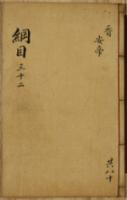 晋
安帝
綱目
三十二
共八十